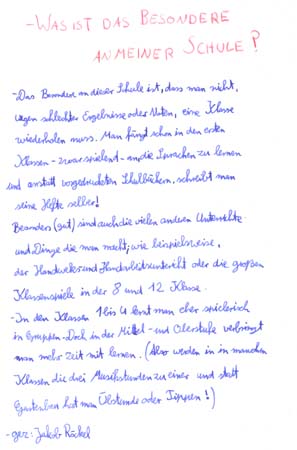 -WAS IST DAS BESONDERE
AN MEINER SCHULE?
-Das Besondere an dieser Schule ist, dass man nicht,
wegen schlechter Ergebnisse oder Noten, eine Klasse
wiederholen muss. Man fängt schon in den ersten
Klassen - zwar spielend - an die Sprachen zu lernen
und anstatt vorgedruckten Schulbüchern, schreibt man
seine Hefte selber!
Besonders (gut) sind auch die vielen anderen Unterrichte
und Dinge die man macht; wie beispielsweise,
der Handwerks und Handarbeitsunterricht oder die großen
Klassenspiele in der 8 und 12 Klasse.
-In den Klassen 1 bis 4 lernt man eher spielerisch
in Gruppen - Doch in der Mittel - und Oberstufe verbringt
man mehr Zeit mit lernen. (Also werden in in manchen
Klassen die drei Musikstunden zu einer und statt
Gartenbau hat man Übstunde oder Tippen!)
-gez: Jakob